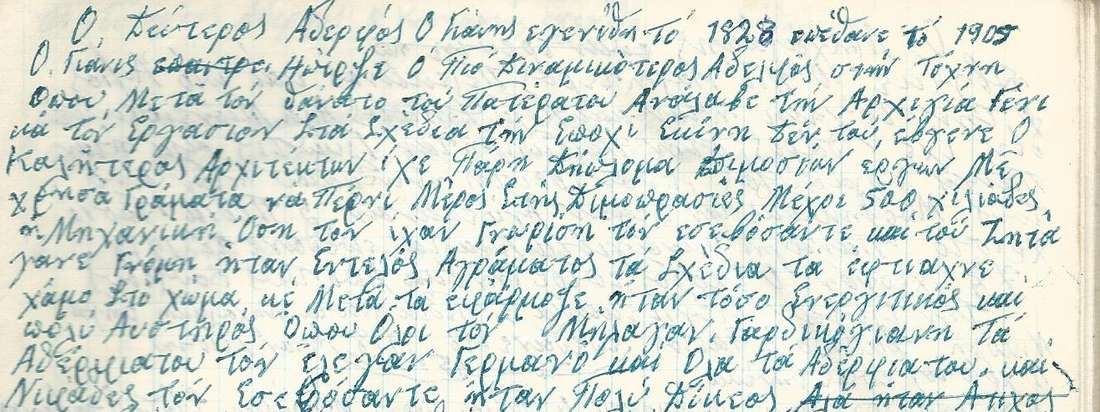 Ο. Δεύτερος Αδερφός Ο Γιάνης εγενήθη τό 1828 απέθανε τό 1905
Ο. Γιάνης Ηπίρξε Ο Πιό Διναμικότερος Αδελφός στήν Τέχνη
Οπου Μετά τόν θάνατο τού Πατέρατου Ανάλαβε τήν Αρχιγιά Γενι
κά τόν Εργασιόν Στα Σχέδια τήν Εποχί Εκίνη Δέν τού έβγενε Ο
Καλήτερος Αρχιτέκτων ίχε Πάρη Δήπλομα Διμοσίων έργων Μέ
χρησά Γράματα νά Πέρνι Μέρος Στής Διμοπρασίες Μέχρι 500 χιλιάδες
η Μηχανική Οση τόν ίχαν Γνωρίση τόν εσεβόσαντε καί τού Ζητά
γανε Γνόμη ήταν Εντελός Αγράματος τά Σχέδια τα έφτιαχνε
χάμο Στό χώμα κέ Μετά τά εφάρμοζε ήταν τόσο Ενεργιτικός καί
πολύ Αυστηρός Οπου Ολι τόν Μήλαγαν. Γαρδικόγιανη Τά
Αδέρφιατου τόν έλεγαν Γερμανό καί Ολα τα Αδέρφιατου. καί
Νιφάδες τόν Εσεβόσαντε ήταν Πολύ Δίκεος Αλά ήταν Ατιχος